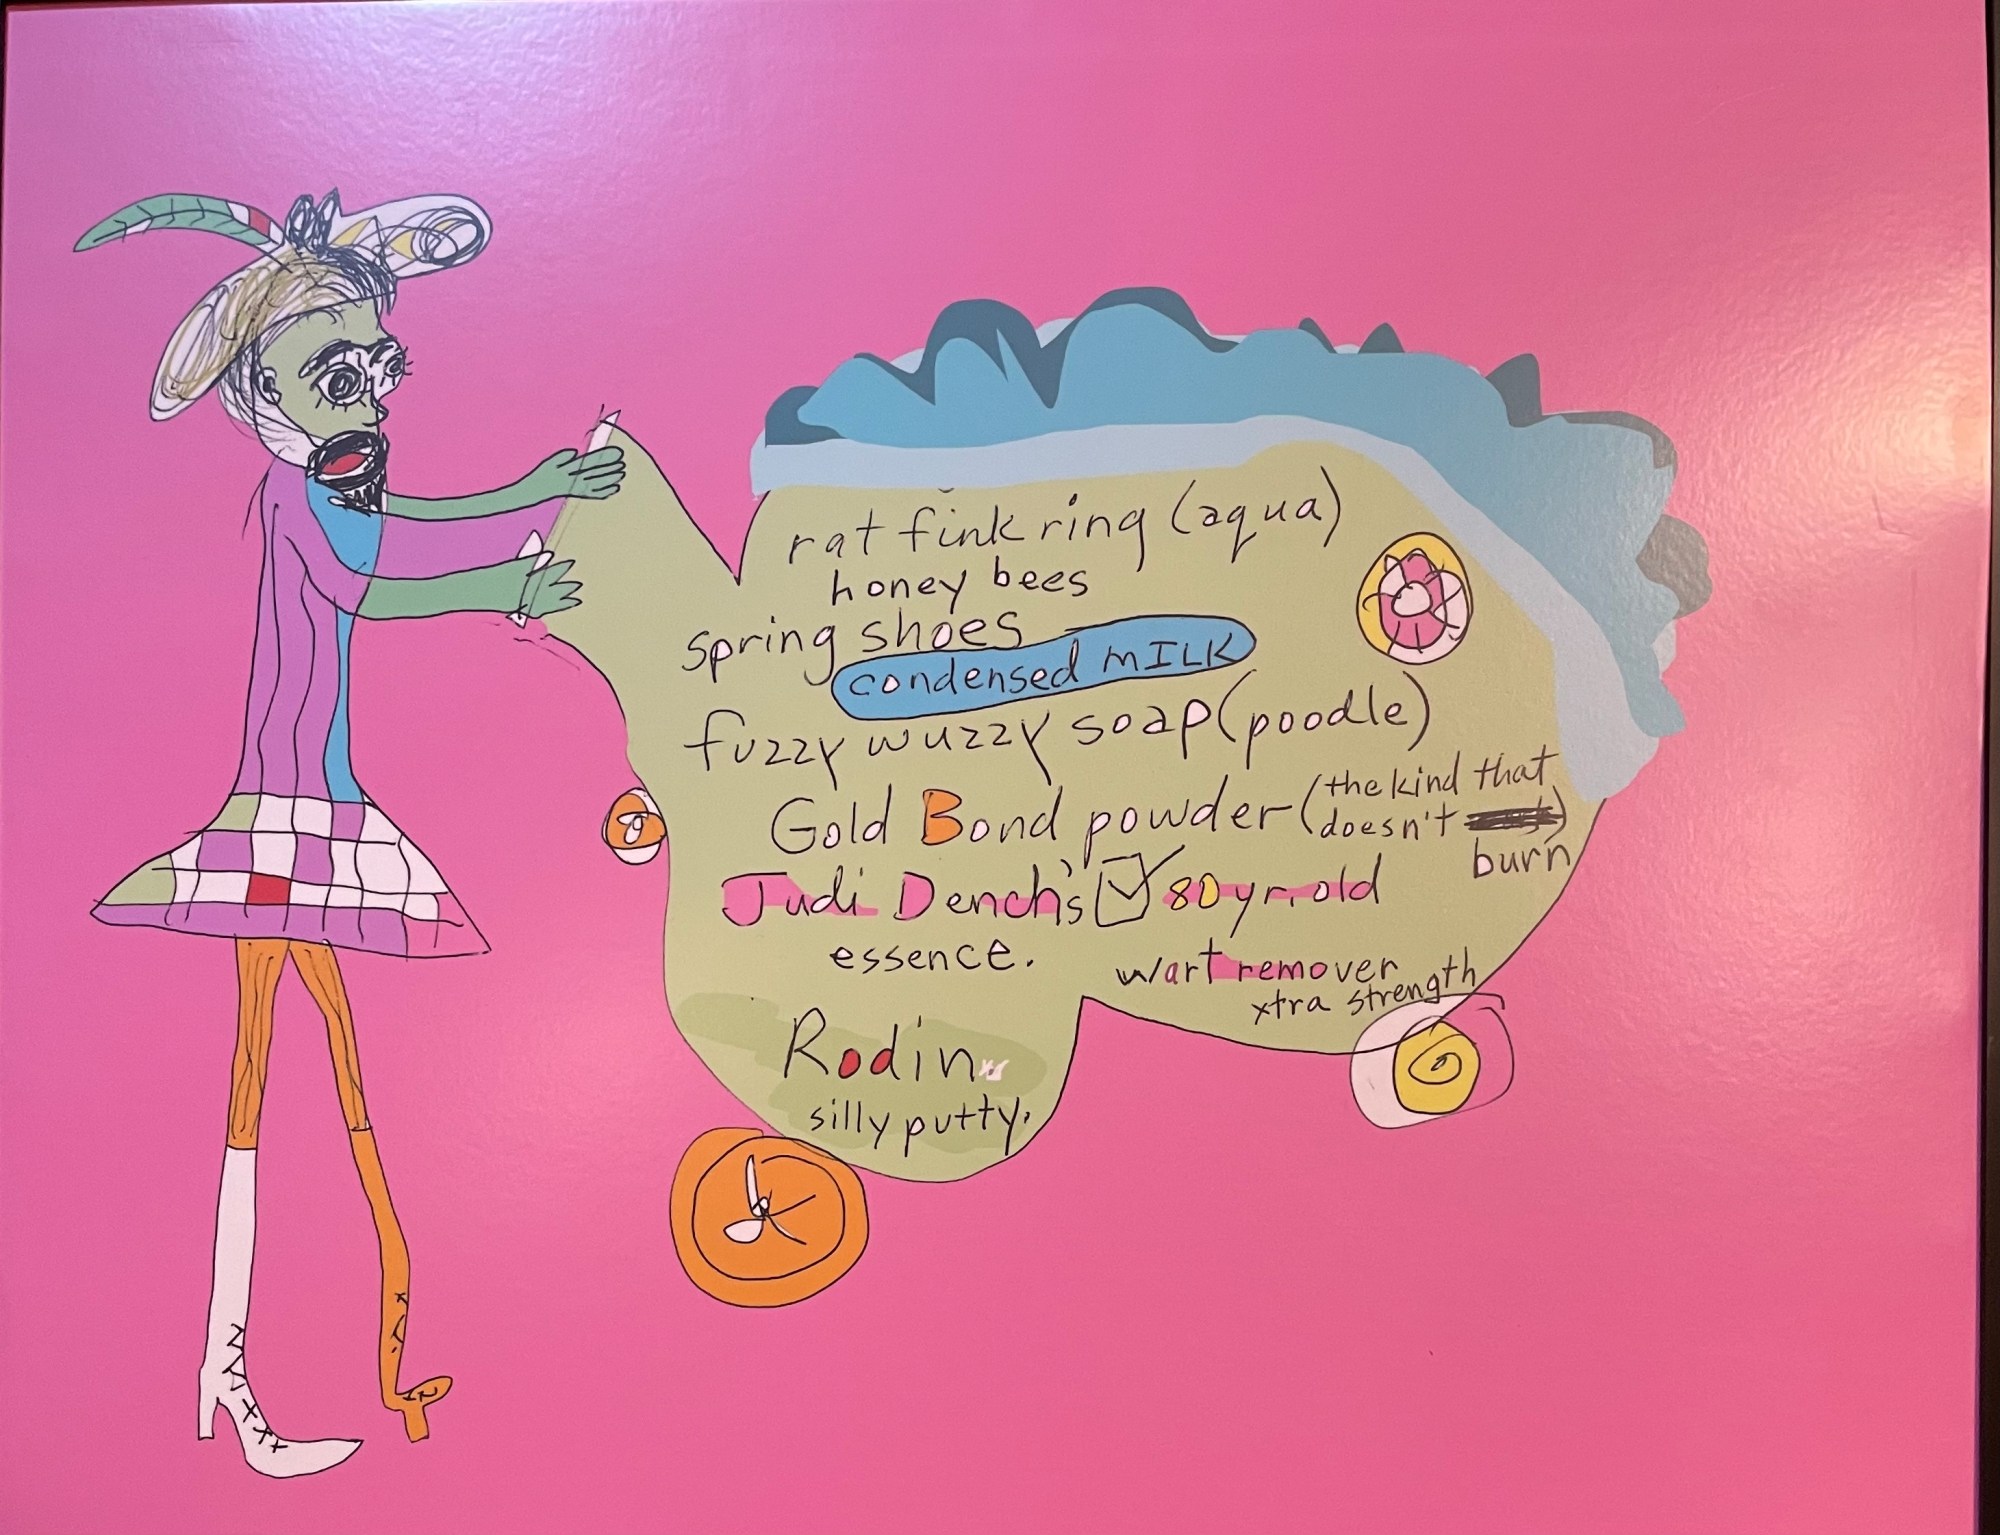 rat fink ring (aqua)
honey bees
spring shoes
condensed MILK
fuzzy wuzzy soap (poodle)
Gold Bond powder (the kind that
doesn't burn)
Judi Dench's 80 yr. old
essence.
wart remover
xtra strength
Rodin
silly putty.